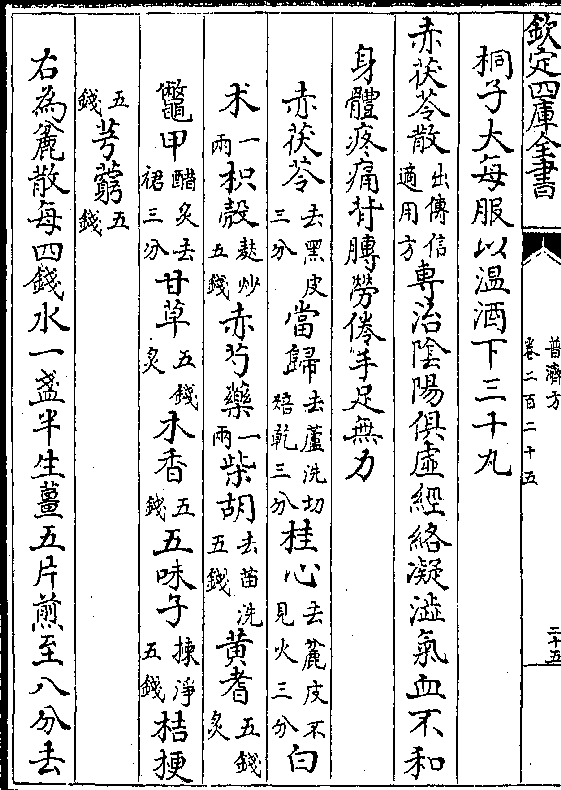 欽定四庫全書
普濟方
卷二百二十五
二十五
桐子大每服以温酒下三十丸
赤茯苓散出傳信適用方專治陰陽俱虛經絡凝澁氣血不和
身體疼痛背膊勞倦手足無力
赤茯苓去黑皮三分當歸去蘆洗切焙乾三分桂心去麄皮不見火三分白
术一兩枳殻麸炒五錢赤芍藥一兩柴胡去苗洗五錢黄耆五錢炙
鼈甲醋炙去裙三分甘草五錢炙木香五錢五味子揀淨五錢桔梗
五錢芎藭五錢
右為麄散每四錢水一盞半生薑五片煎至八分去